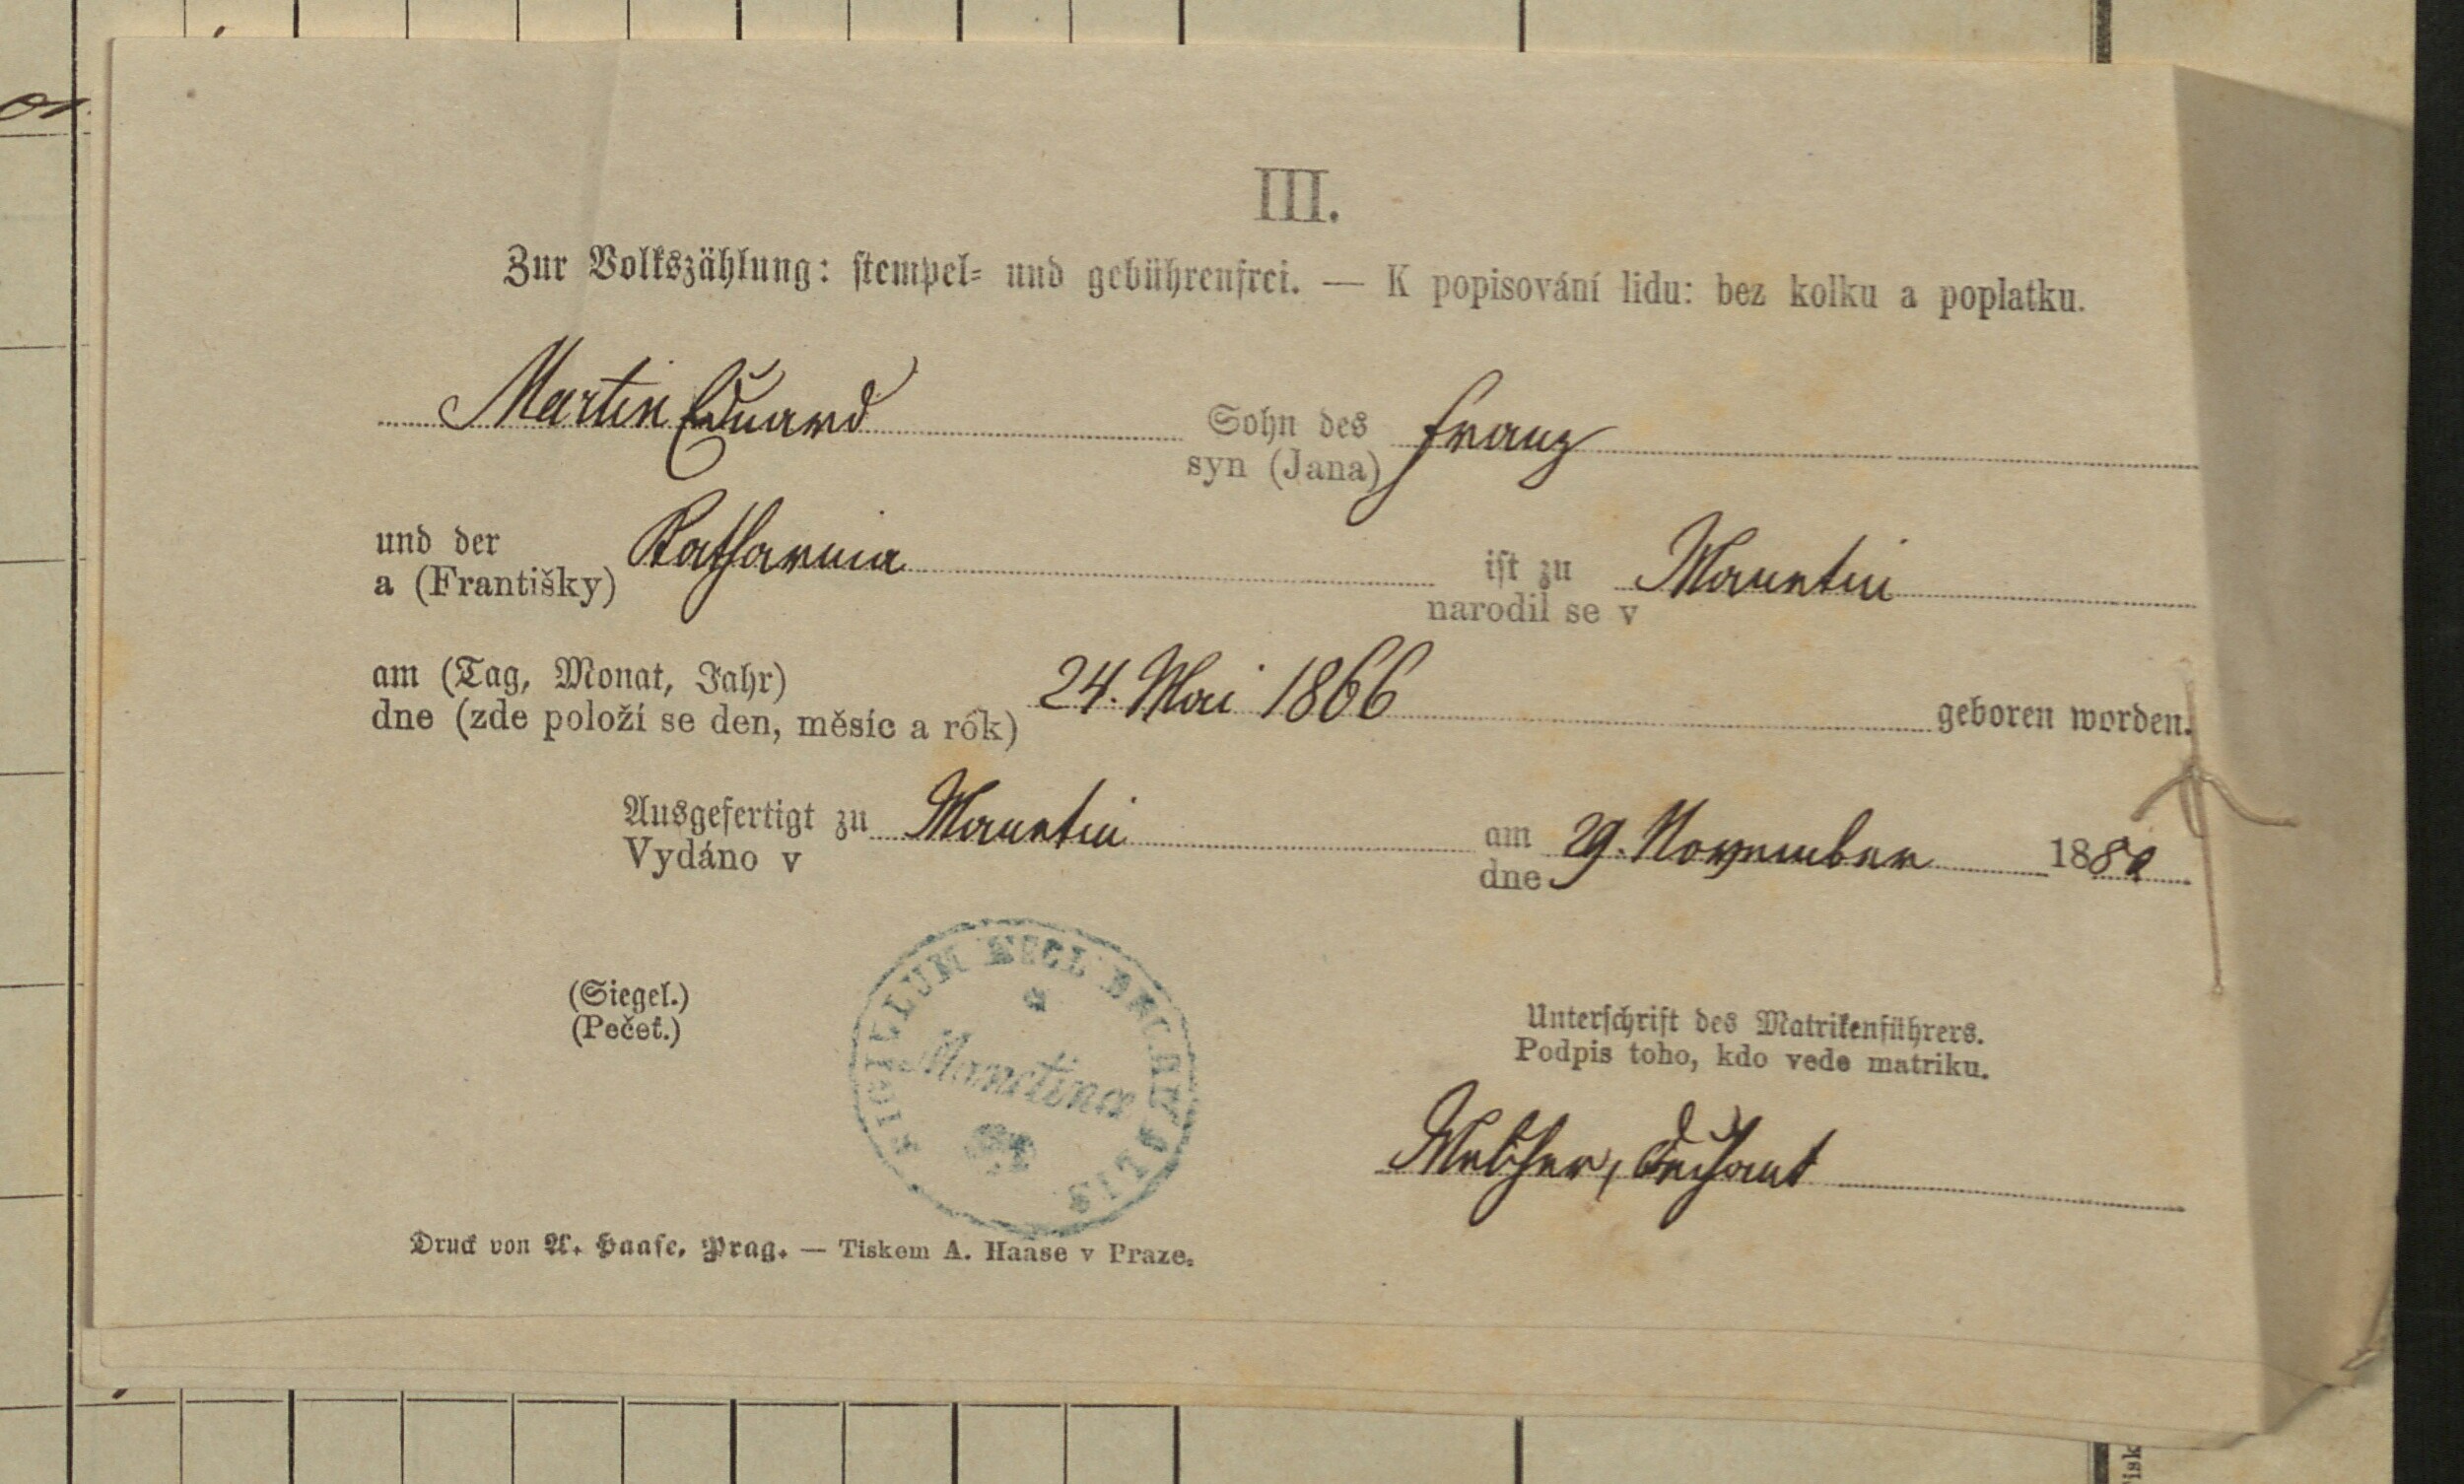 III.
Zur Volkszählung: stempel- und gebührenfrei. — K popisování lidu: bez kolku a poplatku.
Martin Eduard Sohn des Franz
syn (Jana)
und der Katharina ist zu Manetin
a (Františky) narodil se v
am (Tag, Monat, Jahr) 24. Mai 1866 geboren worden.
dne (zde položí se den, měsíc a rok)
Ausgefertigt zu Manetin am 29. November 1880
Vydáno v dne
(Siegel.)
(Pečeť.)
SIGILLUM ECCL
Manetinæ
Unterschrift des Matrikenführers.
Podpis toho, kdo vede matriku.
Dechant
Druck von A. Haase, Prag. — Tiskem A. Haase v Praze.